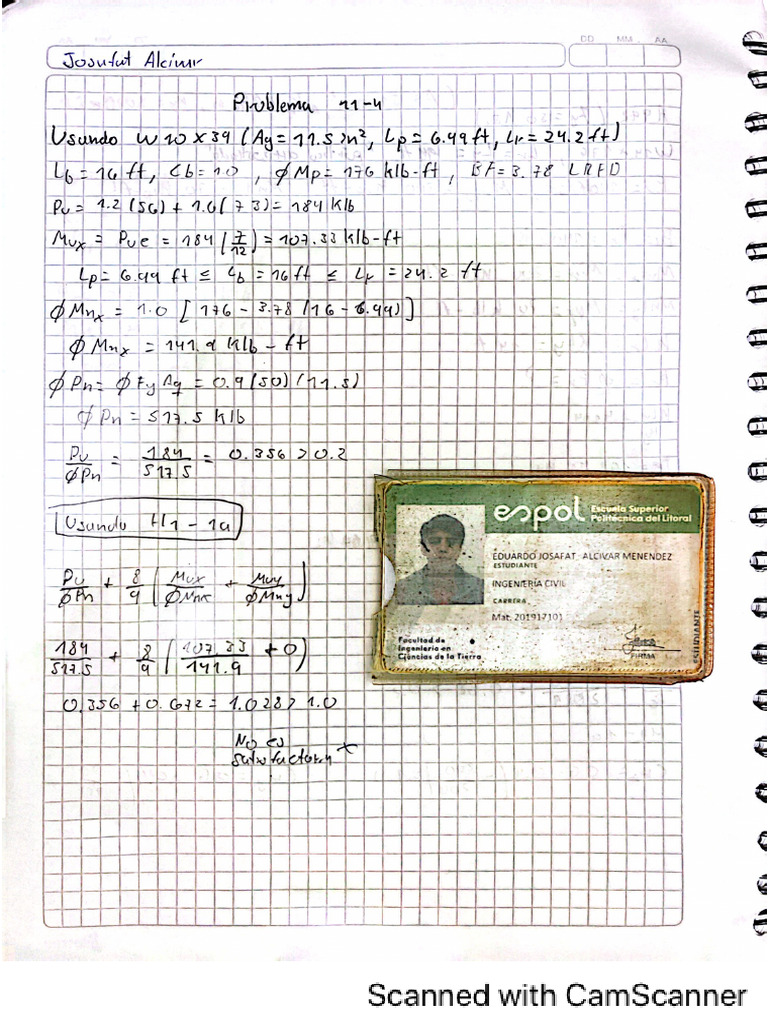 DD MM AA
Josafat Alcivar
Problema 11-4
Usando W10x39 (Ag=11.5 in², Lp=6.99ft, Lr=24.2ft)
Lb=16ft, Cb=1.0, φMp=176 klb-ft, BF=3.78 LRFD
Pu=1.2(56)+1.6(73)=184 klb
Mux = Pu e = 184 (7/12) = 107.33 klb-ft
Lp=6.99 ft ≤ Lb=16ft ≤ Lr=24.2 ft
φMnx = 1.0 [176-3.78(16-6.99)]
φMnx = 141.9 klb-ft
φPn= φFyAg = 0.9(50)(11.5)
φPn=517.5 klb
Pu/φPn = 184/517.5 = 0.356>0.2
Usando H1-1a
Pu/φPn + 8/9 (Mux/φMnx + Muy/φMny)
184/517.5 + 8/9 (107.33/141.9 + 0)
0.356+0.672=1.028>1.0
No es
satisfactoria x
espol Escuela Superior
Politécnica del Litoral
EDUARDO JOSAFAT ALCIVAR MENENDEZ
ESTUDIANTE
INGENIERÍA CIVIL
CARRERA
Mat. 201917101
Facultad de
Ingeniería en
Ciencias de la Tierra
FIRMA
ESTUDIANTE
Scanned with CamScanner